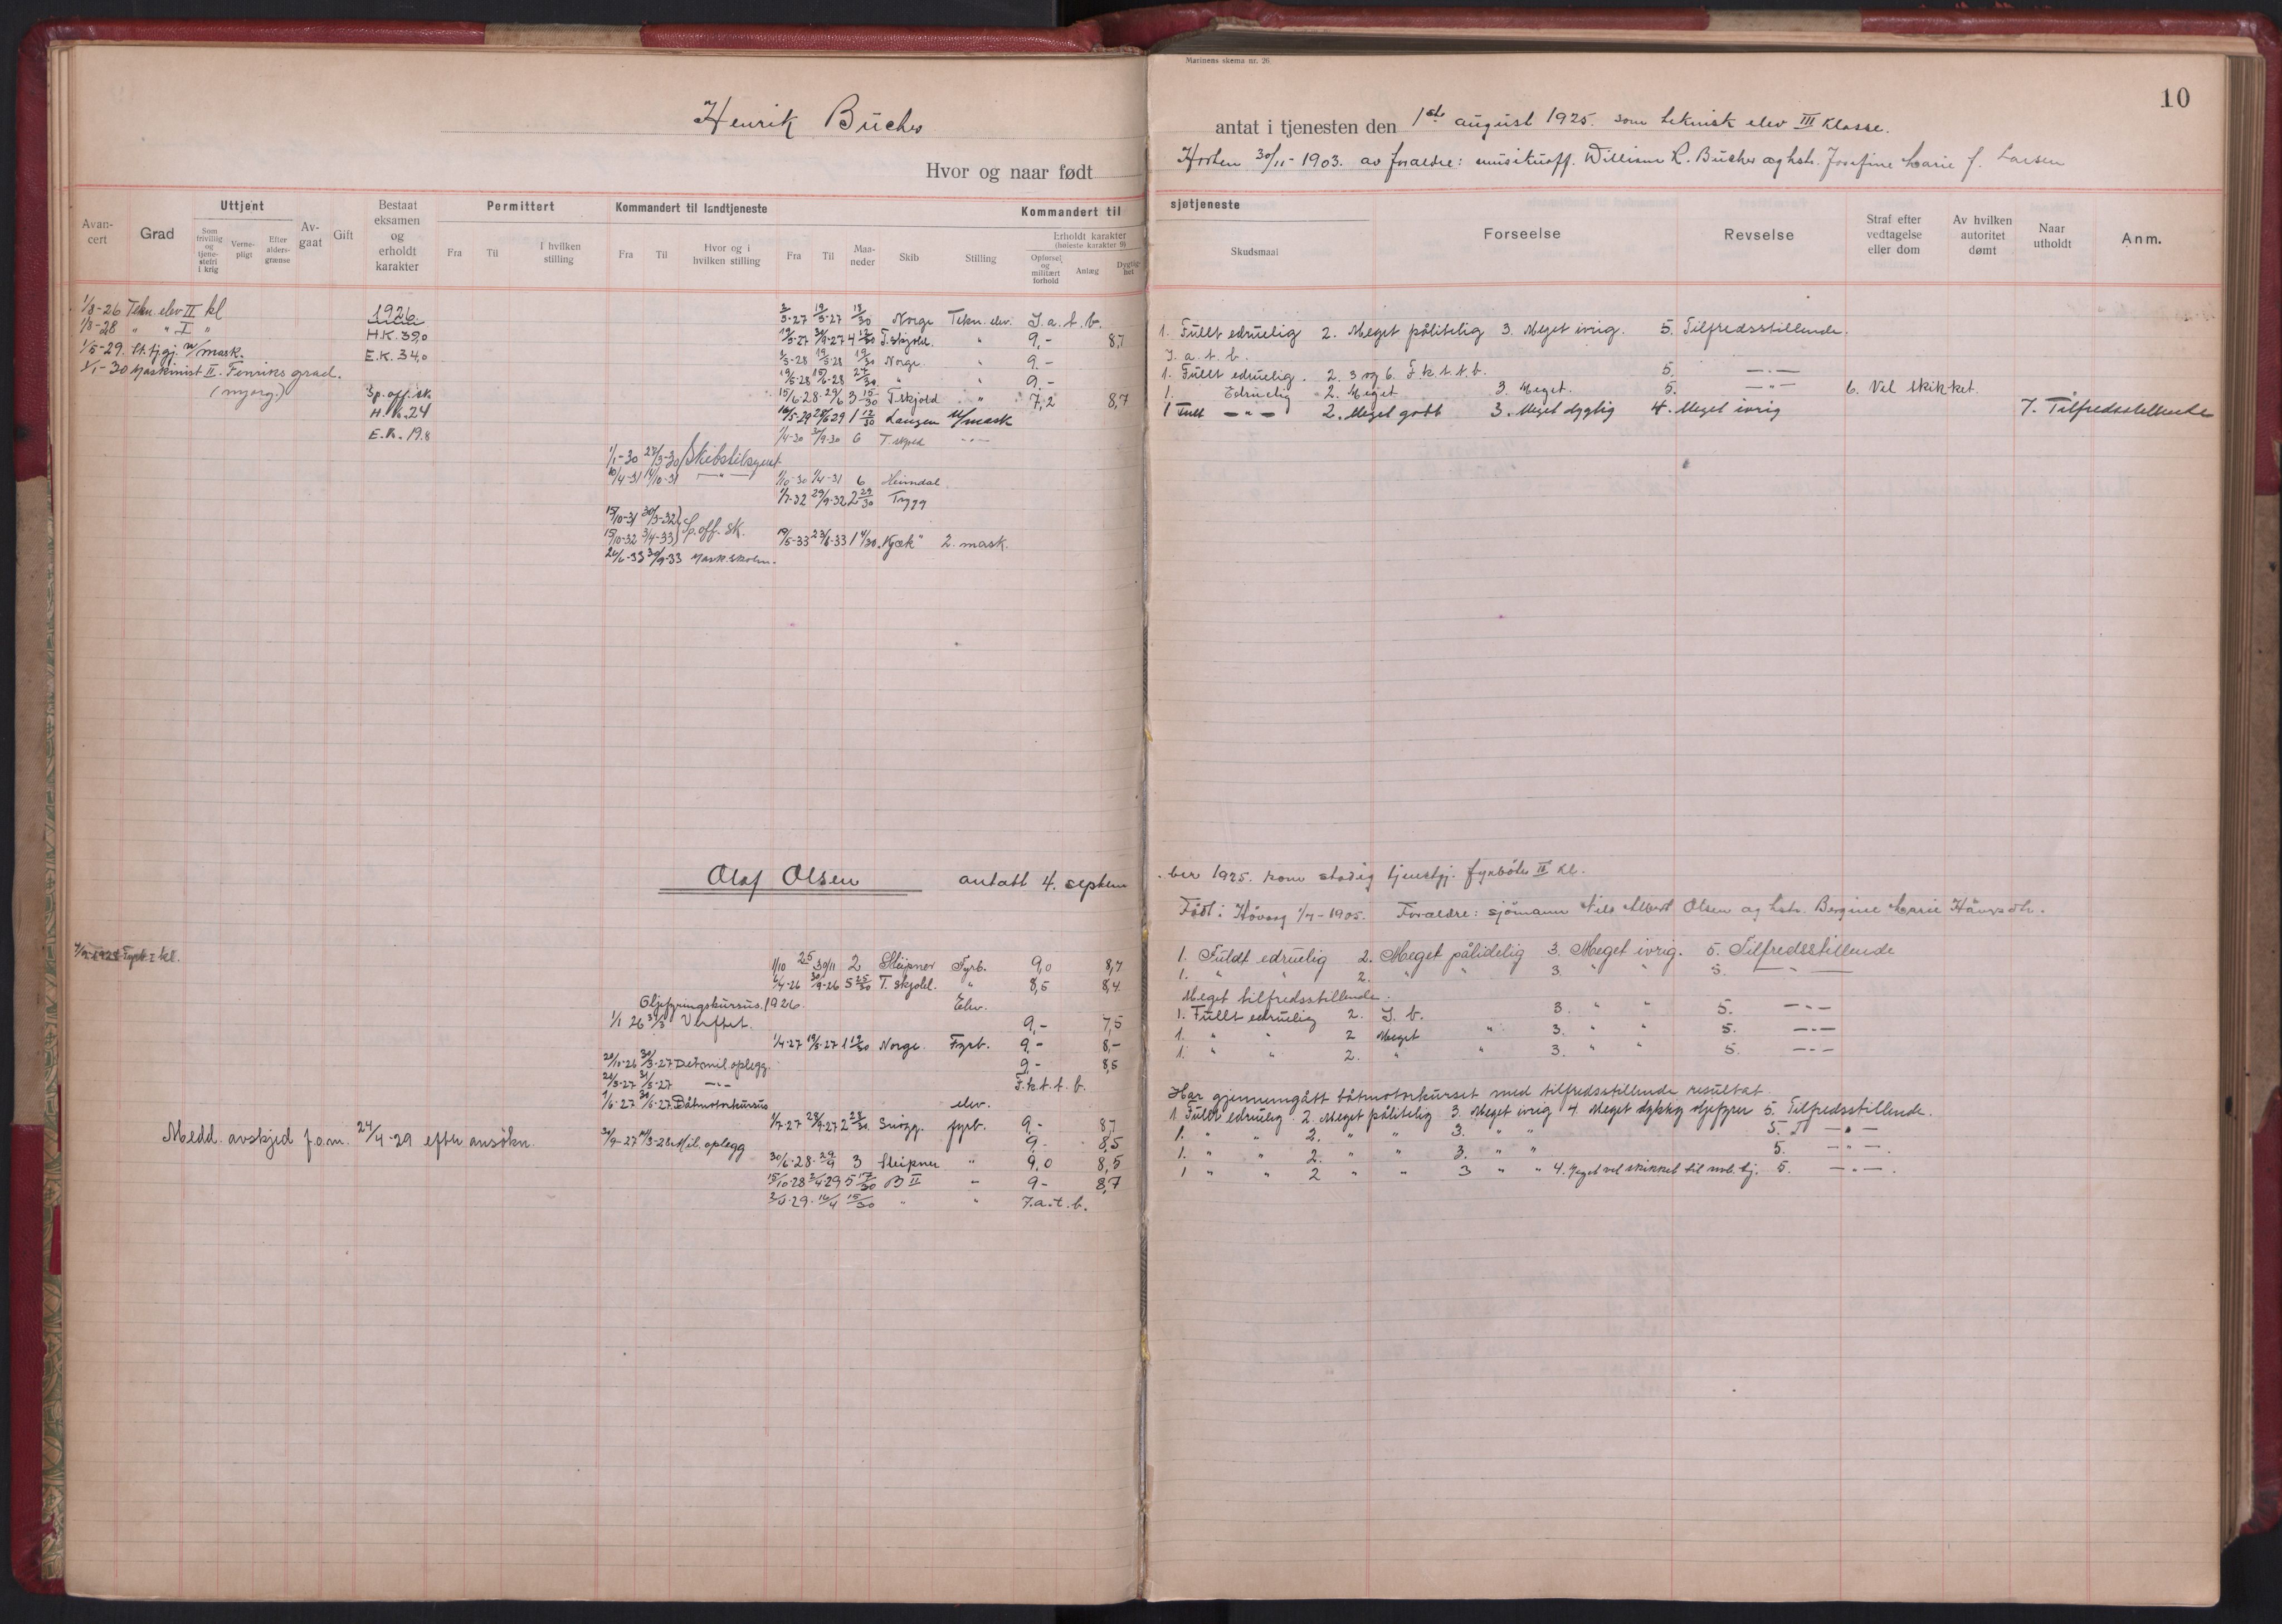 Marinens skema nr. 26.
10
Henrik Bücher
antat i tjenesten den 1ste august 1925. som teknisk elev III Klasse.
Hvor og naar født Horten 30/11-1903. av foraeldre: musikuoff. William R. Bücher og hstr. Josefine Marie f. Larsen
Avan-cert Grad Uttjent Som frivillig og tjene-stefri i krig Verne-pligt Efter alders-grænse Av-gaat Gift Bestaat eksamen og erholdt karakter
Permittert Fra Til I hvilken stilling
Kommandert til landtjeneste Fra Til Hvor og i hvilken stilling
Kommandert til sjøtjeneste Fra Til Maa-neder Skib Stilling Erholdt karakter (høieste karakter 9) Opførsel og militært forhold Anlæg Dygtig-het
Skudsmaal Forseelse Revselse Straf efter vedtagelse eller dom Av hvilken autoritet dømt Naar utholdt Anm.
1/8-26 Tekn. elev II kl
1/8-28 " " I "
1/5-29. st. tj.gj. u/mask.
1/1-30 Maskinist II. Fenriks grad.
(nyorg.)
1926.
H.K. 39,0
E.K. 34,0
Sp. off. sk.
H.K. 24
E.K. 19.8
2/5-27 19/5-27 18/30 Norge Tekn. elev. I.a.t.b.
19/5-27 30/9-27 4 12/30 T. skjold. " 9,- 8,7
1. Fullt edruelig 2. Meget pålitelig 3. Meget ivrig. 5. Tilfredsstillende.
1/5-28 19/5-28 19/30 Norge " 9.-
I.a.t.b.
19/5-28 15/6-28 27/30 " " 9.-
1. Fullt edruelig. 2. 3 og 6. F.k.t.t.b. 5. —"—
15/6-28-29/9 3 15/30 T. skjold " 7,2 8,7
1. Edruelig 2. Meget 3. Meget. 5. —"— 6. Vel skikket.
16/5-29 28/6 29 1 12/30 Laugen u/mask
1 Fullt —"— 2. Meget godt 3. Meget dygtig 4. Meget ivrig 7. Tilfredsstillende
1/4-30 30/9-30 6 T. skjold —"—
1/1-30 28/3-30 Skibstilsynet
10/4-31 14/10-31 —"— 1/10-30 1/4-31 6 Heimdal
1/7-32 29/9-32 2 29/30 Trygg
15/10-31 30/3-32
15/10-32 3/4-33 Sp. off. sk. 19/5-33 23/6-33 1 4/30 "Kjæk" 2. mask.
24/6-33 30/9-33 Mask.skolen.
Olaf Olsen antatt 4. septem
ber 1925. som stadig tjenestgj. fyrbøter II kl.
Født: Høvaag 1/7-1905. Foraeldre: sjømann Nils Albert Olsen og hstr. Bergine Marie
Fyrb. I kl.
1/10 25 30/11 2 Sleipner Fyrb. 9,0 8,7
1. Fuldt edruelig 2. Meget pålidelig 3. Meget ivrig. 5. Tilfredsstillende
6/4-26 30/9-26 5 25/30 T. skjold. " 8,5 8,4
1. " " 2. " " 3. " " 5. —"—
Oljefyringskursus. 1926. Elev.
Meget tilfredsstillende.
1/1 26 31/3 Verftet. 9,- 7,5
1. Fullt edruelig 2. I.b. 3. " " 5. —"—
1/4-27 19/5-27 1 19/30 Norge. Fyrb. 9,- 8,-
1. " " 2 Meget " 3. " " 5. —"—
20/10-26 30/3-27 Det. mil. oplegg. 9,- 8,5
1. " " 2. " " 3. " " 5. —"—
20/5-27 31/5-27 —"— F.k.t.t.b.
1/6-27 30/6-27. Båtmotorkursus elev.
Har gjennemgått båtmotorkurset med tilfredsstillende resultat
1/7-27 28/9-27 2 28/30 Snøgg. fyrb. 9,- 8,7
1. Fullt edruelig. 2. Meget pålitelig 3. Meget ivrig 4. Meget dyktig oljefyrer 5. Tilfredsstillende.
Medd. avskjed f.o.m. 24/4-29 efter ansøkn.
Mil. oplegg 9,- 8,5
1. " " 2. " " 3. " " 5. —"—
30/6-28-29/9 3 Sleipner " 9,0 8,5
1. " " 2. " " 3. " " 5. —"—.
15/10-28 2/4-29 5 17/30 B II " 9- 8,7
1 " " 2 " " 3 " " 4. Meget vel skikket til mob. tj. 5. —"—.
2/4-29-16/4 15/30 " " I.a.t.b.